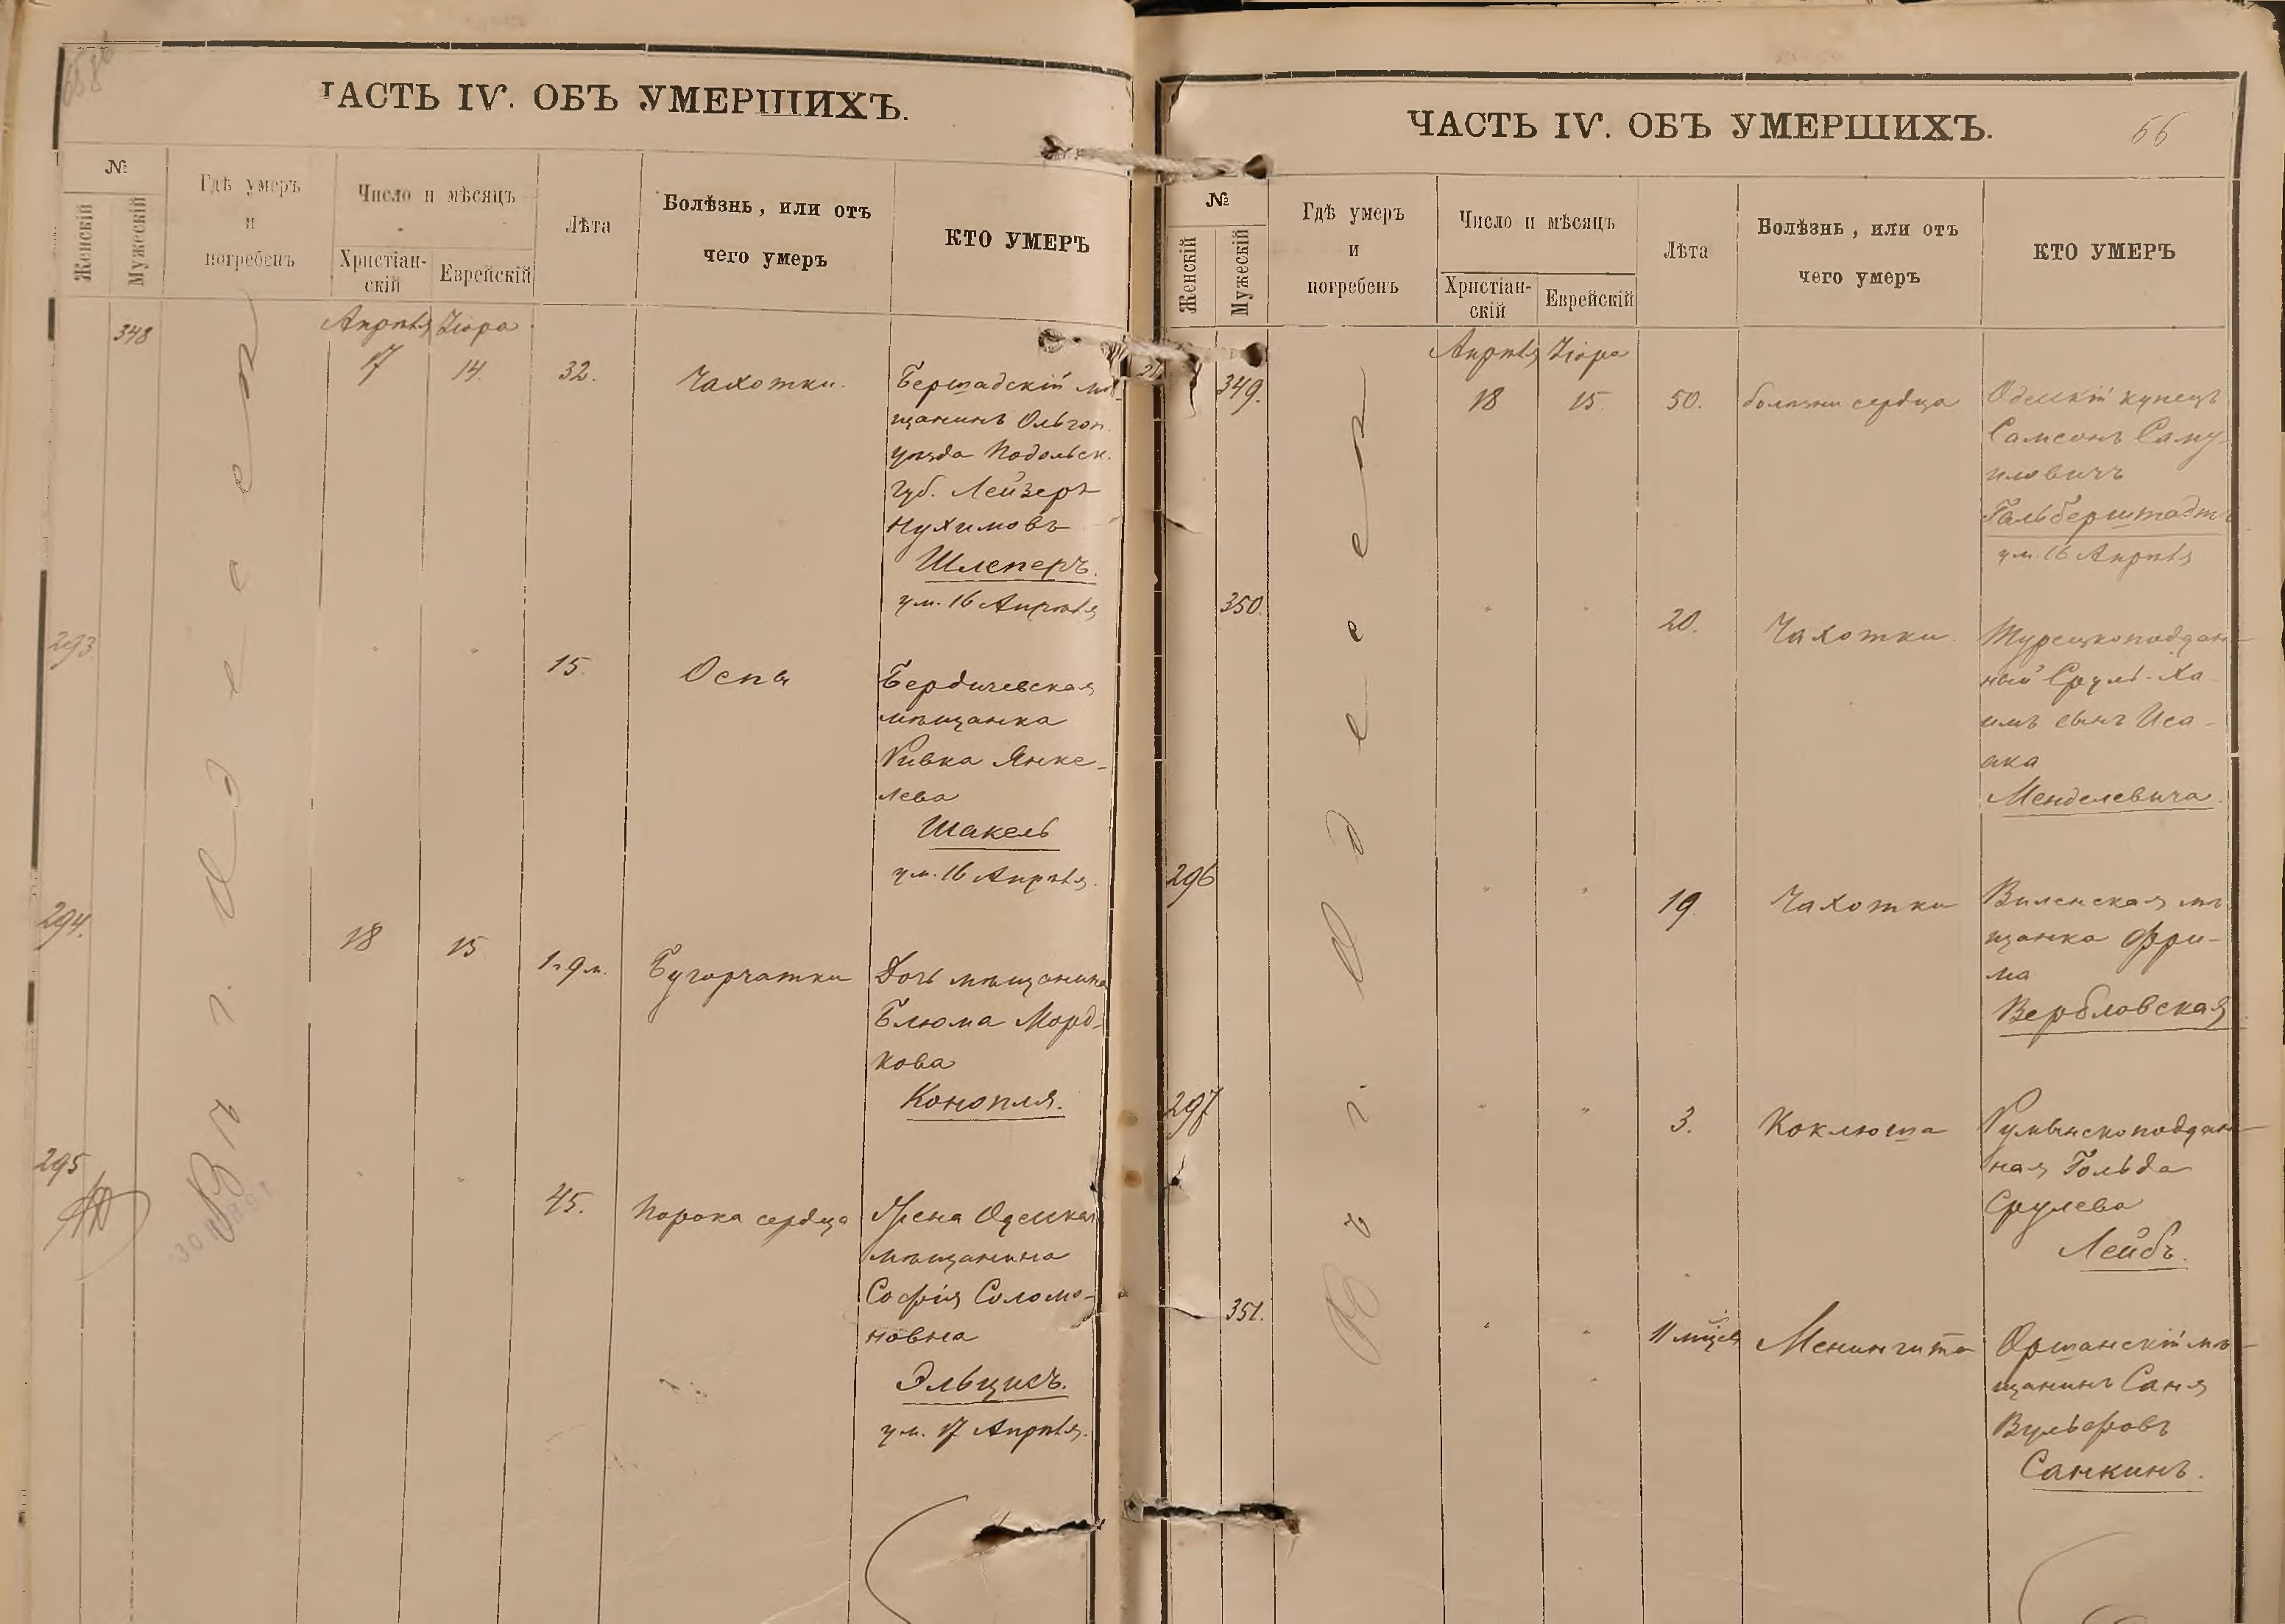 ЧАСТЬ IV. ОБЪ УМЕРШИХЪ.
№
Женскій
Мужескій
Гдѣ умеръ
и
погребенъ
Число и мѣсяцъ
Христіан-
скій
Еврейскій
Лѣта
Болѣзнь, или отъ
чего умеръ
КТО УМЕРЪ
Въ г. Одессѣ
Апрѣля Іiора
348
17 14. 32. Чахотки. Бершадскій мѣ
щанинъ Ольгоп.
уѣзда Подольск.
губ. Лейзеръ
Нухимовъ
Шлеперъ.
ум. 16 Апрѣля
293
" " 15. Оспы Бердичевская
мѣщанка
Ривка Янке-
лева
Шакель
ум. 16 Апрѣля.
294.
18 15 1 г. 9 м. Бугорчатки Дочь мѣщанина
Блюма Морд-
кова
Конопля.
295
" " 45. Порока сердца Жена Одесскаго
мѣщанина
Софія Соломо-
новна
Эльцисъ.
ум. 17 Апрѣля.
ЧАСТЬ IV. ОБЪ УМЕРШИХЪ.
66
№
Женскій
Мужескій
Гдѣ умеръ
и
погребенъ
Число и мѣсяцъ
Христіан-
скій
Еврейскій
Лѣта
Болѣзнь, или отъ
чего умеръ
КТО УМЕРЪ
Въ г. Одессѣ
Апрѣля Іiора
349.
18 15 50. болѣзни сердца Одесскій купецъ
Самсонъ Саму-
иловичъ
Гальберштадтъ
ум. 16 Апрѣля
350.
" " 20. Чахотки. Турецкоподдан-
ный Сруль-Ха-
имъ сынъ Иса-
ака
Менделевича.
296
" " 19 Чахотки Виленская мѣ
щанка Фри-
ма
Вербловская
297
" " 3. Коклюша Румынскоподдан-
ная Гольда
Срулева
Лейбъ.
351.
" " 11 мѣсяц. Менингита Оршанскій мѣ-
щанинъ Саня
Вульфовъ
Санкинъ.